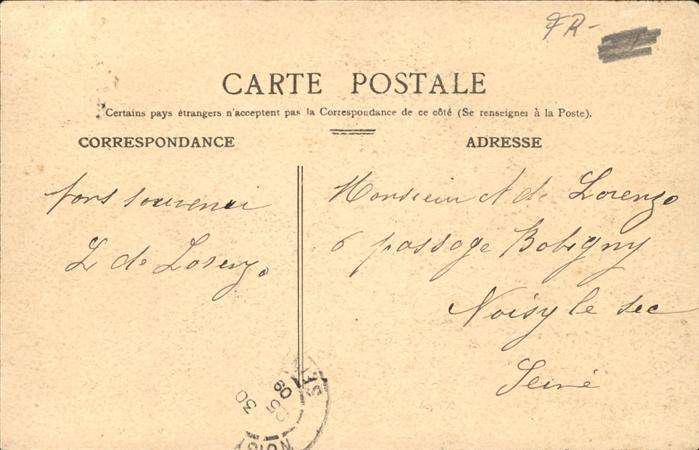 FR-
CARTE POSTALE
Certains pays étrangers n'acceptent pas la Correspondance de ce côté (Se renseigner à la Poste).
CORRESPONDANCE
ADRESSE
souvenir
L de Lorenzo
Monsieur A de Lorenzo
6 passage Bobigny
Noisy le sec
Seine
NOISY
30